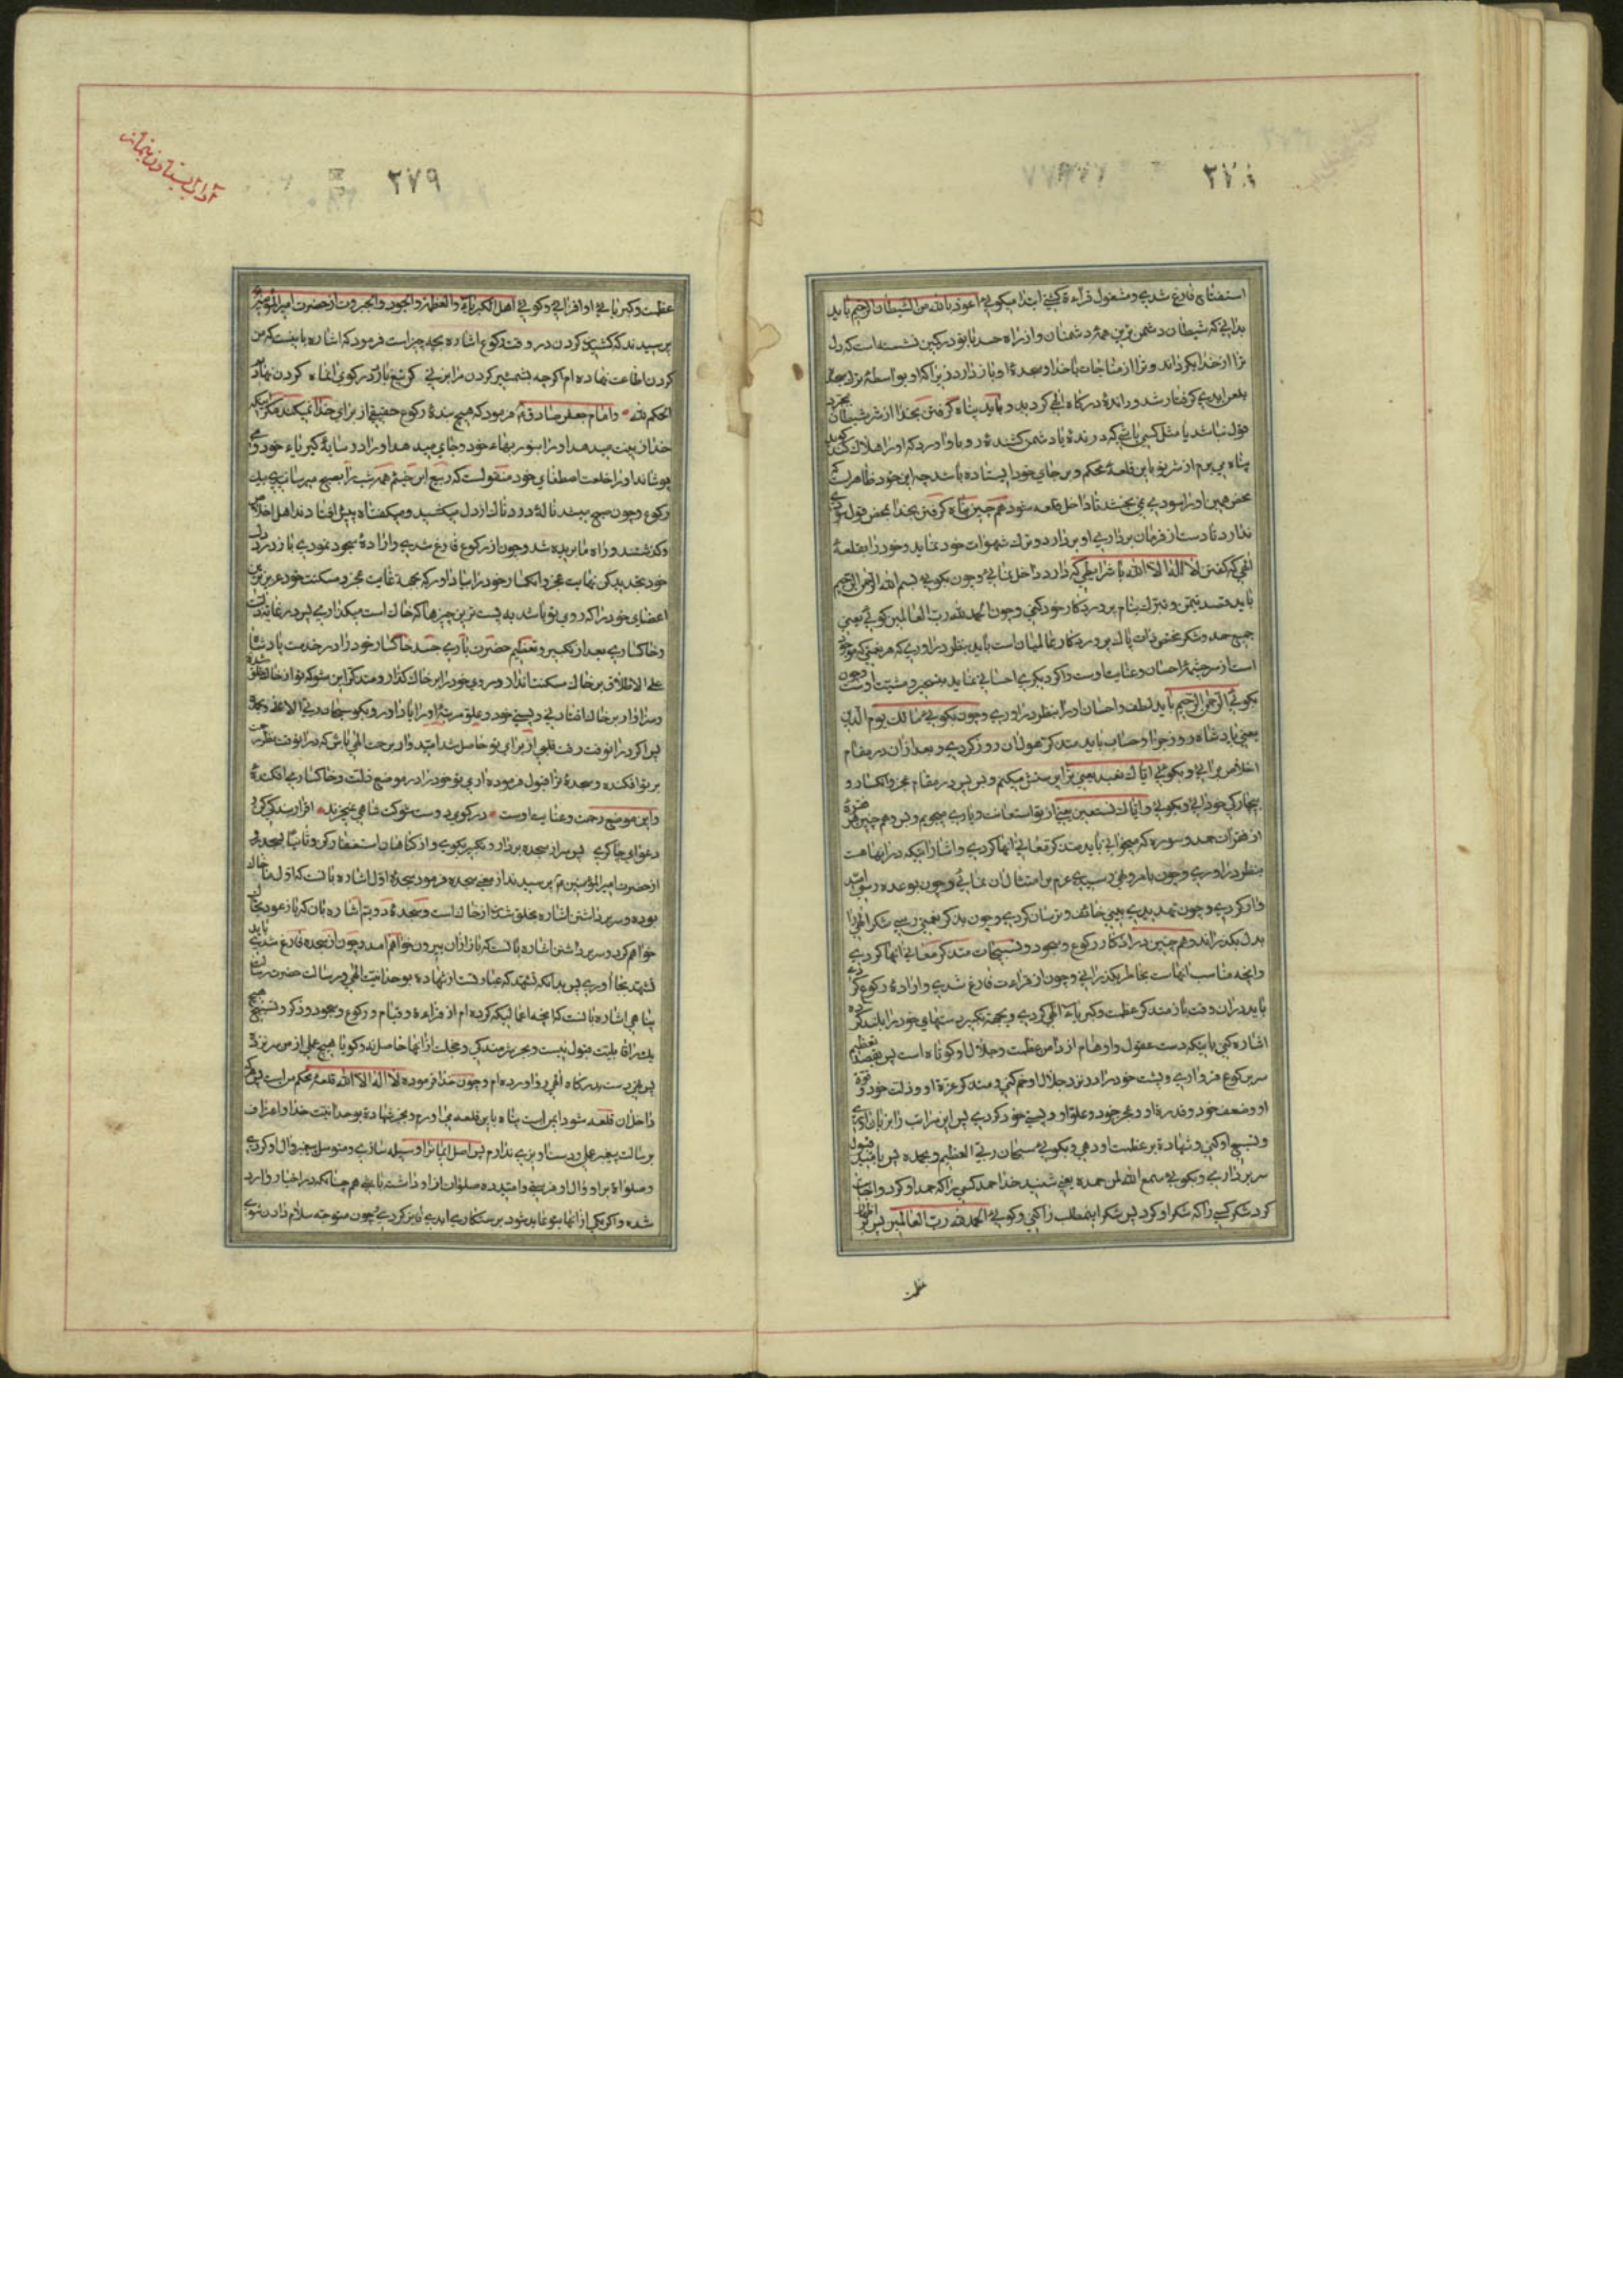 ۲۷۸
استفتاح فارغ شدی و مشغول قراءة کنی ابتدا میکویی اعوذ بالله من الشیطان الرجیم باید
بدانی که شیطان دشمن ترین همه دشمنان و از راه حسد با تو در کمین نشسته است که دل
ترا از خدا بکرداند و ترا از مناجات با خدا و سجدهٔ او باز دارد زیرا که او بواسطهٔ ترک سجده
بلعن ابدی کرفتار شد و راندهٔ درکاه الهی کردید و باید پناه کرفتن بخدا از شر شیطان بمجرد
قول نباشد یا مثل کسی باشی که درندهٔ یا دشمن کشندهٔ رو باو آورد که او را هلاک کند کوید
پناه می برم از شر تو باین قلعهٔ محکم و بر جای خود ایستاده باشد چه این خود ظاهر است که
محض همین او را سودی نمی بخشد تا داخل قلعه شود همچنین پناه کرفتن بخدا بمحض قول سودی
ندارد تا دست از فرمان برداری او بر ندارد و ترک شهوات خود ننماید و خود را بقلعهٔ
الهی که کفتن لا اله الا الله با شرایطی که دارد داخل نمائی و چون بکویی بسم الله الرحمن الرحیم
باید قصد تیمن و تبرک بنام پروردکار خود کنی و چون الحمد لله رب العالمین کوئی یعنی
جمیع حمد و شکر مختص ذات پاک پروردکار عالمیان است باید بنظر در آوری که هر نعمتی که موجود
است از سرچشمهٔ احسان و عنایت اوست و اکر دیکری احسانی نماید مسخر و مشیت اوست و چون
بکوئی الرحمن الرحیم باید لطف و احسان او را بنظر در آوری و چون بکویی مالک یوم الدین
یعنی پادشاه روز جزا و حساب باید متذکر هول آن روز کردی و بعد از آن در مقام
اخلاص برآیی و بکوئی ایاک نعبد یعنی ترا پرستش میکنم و بس پس در مقام عجز و انکسار و
بیچارکی خود آیی و بکویی و ایاک نستعین یعنی از تو استعانت و یاری میجویم و بس و همچنین هر فقرهٔ
از فقرات حمد و سوره که میخوانی باید متذکر معانی آنها کردی و اشاراتیکه در آنها هست
بنظر در آوری و چون بامر و نهی رسیدی عزم بر امتثال آن نمائی و چون بوعده رسی امید
وار کردی و چون تهدیدی یعنی خائف و ترسان کردی و چون بذکر نعمتی رسی شکر الهی را
بدل بکذرانی و همچنین در اذکار رکوع و سجود و تسبیحات متذکر معانی آنها کردی
و آنچه مناسب آنهاست بخاطر بکذرانی و چون از قراءت فارغ شدی و ارادهٔ رکوع کردی
باید در آن وقت باز متذکر عظمت و کبریاء الهی کردی و بجهة تکبیر دستهای خود را بلند کرده
اشاره کنی باینکه دست عقول و اوهام از دامن عظمت و جلال او کوتاه است پس بقصد تعظیم
سر برکوع فرود آری و پشت خود را در نزد جلال او خم کنی و متذکر عزة او و ذلت خود و قوة
او و ضعف خود و قدرة او و عجز خود و علو او و پستی خود کردی پس این مراتب را بر زبان آری
و تسبیح او کنی و شهادة بر عظمت او دهی و بکویی سبحان ربی العظیم و بحمده پس بامید قبول
سر برداری و بکویی سمع الله لمن حمده یعنی شنید خدا حمد کسی را که حمد او کرد و اجابت
کرد شکر کسی را که شکر او کرد پس شکر اینمطلب را کنی و کویی الحمد لله رب العالمین پس
عظمت
۲۷۹
آداب ایستادن بنماز
عظمت و کبریا یی او افزایی و کویی اهل الکبریاء والعظمة والجود والجبروت از حضرت امیرالمؤمنین
پرسیدند که کشیدن کردن در وقت رکوع اشاره بچه چیز است فرمود که اشاره باینست که من
کردن اطاعت نهاده ام اکرچه بشمشیر کردن مرا بزنی کر تیغ بارد در کوی آن ماه کردن نهادیم
الحکم لله و امام جعفر صادق فرمود که هیچ بندهٔ رکوع حقیقی از برای خدا نمیکند مکر اینکه
خدا زینت میدهد او را بنور بهاء خود و جای میدهد او را در سایهٔ کبریاء خود و می
پوشاند او را خلعت اصطفای خود منقولست که ربیع ابن خثیم همه شب را بصبح میرسانید بیک
رکوع و چون صبح میشد نالهٔ دردناک از دل میکشید و میکفت آه پیش افتادند اهل اخلاص
و کذشتند و راه ما بریده شد و چون از رکوع فارغ شدی و ارادهٔ سجود نمودی باز در دل
خود تجدید کن نهایت عجز و انکسار خود را بیاد آور که بجهة غایت عجز و مسکنت خود عزیزترین
اعضای خود را که روی تو باشد به پست ترین چیزها که خاک است میکذاری پس در نهایت ذلت
و خاکساری بعد از تکبیر و تعظیم حضرت باری جسد خاکسار خود را در خدمت پادشاه
علی الاطلاق بر خاک مسکنت انداز و روی خود را بر خاک کذار و متذکر این شو که تو از خاک خلق شده
و سزاوار بر خاک افتادنی و پستی خود و علو مرتبهٔ او را بیاد آور و بکو سبحان ربی الاعلی و بحمده
پس اکر در آنوقت رقت قلبی از برای تو حاصل شد امیدوار برحمت الهی باش که در آنوقت نظر رحمت
بر تو افکنده و سجدهٔ ترا قبول فرموده از ای تو خود را در موضع ذلت و خاکساری افکندهٔ
و این موضع رحمت و عنایت اوست در کوی دوست شوکت شاهی نمیخرند اقرار بندکی کن و
دعوای چاکری پس سر از سجده بردار و تکبیر بکوی و از کناهان استغفار کن و ثانیا بسجده رو
از حضرت امیرالمؤمنین پرسیدند از معنی سجده فرمود سجدهٔ اول اشاره بآنست که اول ما خاک
بوده و سر برداشتن اشاره بخلق شدن از خاک است و سجدهٔ دویم اشاره بآن که باز عود بخاک
خواهم کرد و سر برداشتن اشاره بآنست که باز از آن بیرون خواهم آمد و چون از سجده فارغ شدی باید
تشهد بجا آوری پس بدانکه تشهد که عبارتست از شهاده بوحدانیت الهی و رسالت حضرت رسالت
پناهی اشاره بآنست که آنچه اعمالیکه کرده ام از قراءة و قیام و رکوع و سجود و ذکر و تسبیح هیچ
یک را قابلیت قبول نیست و بجز شرمندکی و خجلت از آنها حاصل نه و کویا هیچ عملی از من سر نزده
پس تهی دست بدرکاه الهی رو آورده ام و چون خدا فرموده لا اله الا الله قلعهٔ محکم من است پس هرکه
داخل آن قلعه شود ایمن است پناه باین قلعه می آورم و بجز شهادة بوحدانیت خدا و اعتراف
برسالت پیغمبر عملی و دست آویزی ندارم پس اصل ایمان را وسیله سازی و متوسل به پیغمبر و آل او کردی
و صلوات بر او و آل او فرستی و امید ده صلوات از او داشته باشی همچنانکه در اخبار وارد
شده و اکر یکی از آنها بتو عاید شود برستکاری ابدی فایز کردی و چون متوجه سلام دادن شوی